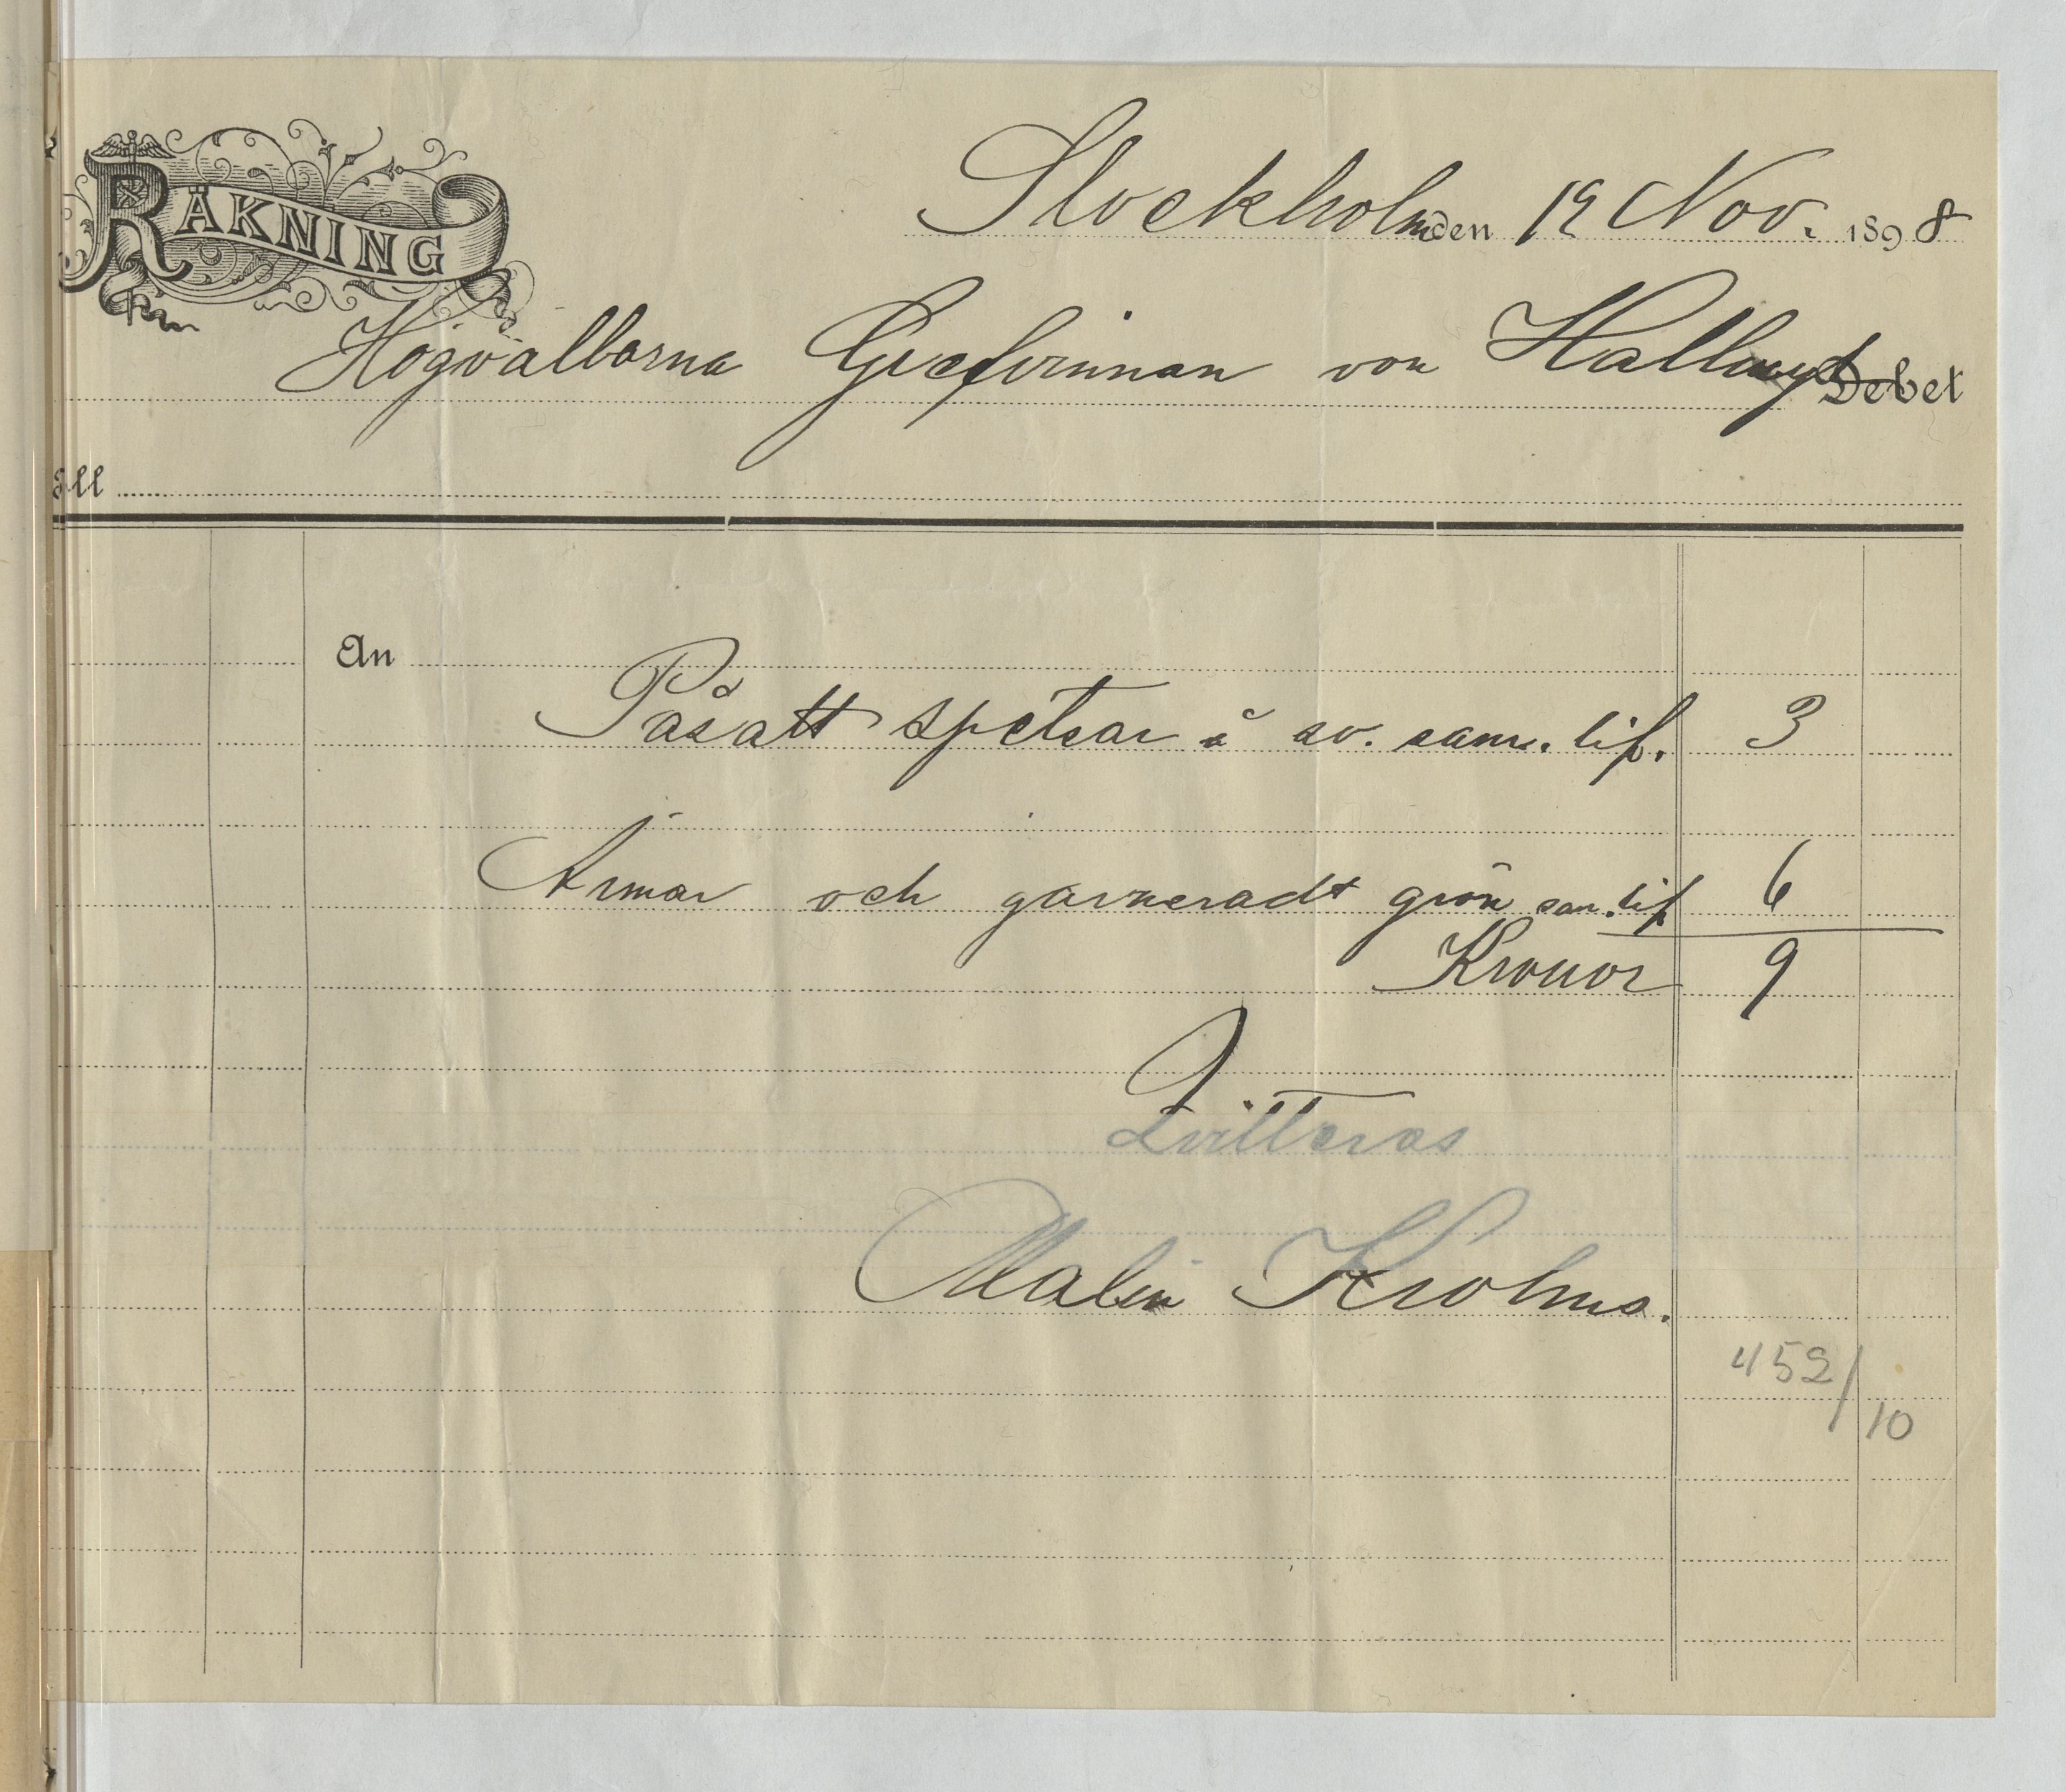 RÄKNING
Stockholm den 19 Nov. 1898
Högvälborna Grefvinnan von Hallwyl Debet
till
An
Påsatt spetsar å sv. sam. lif. 3
Ärmar och garneradt grön sam. lif 6
Kronor 9
Qvitteras
Malin Krohns.
452/10